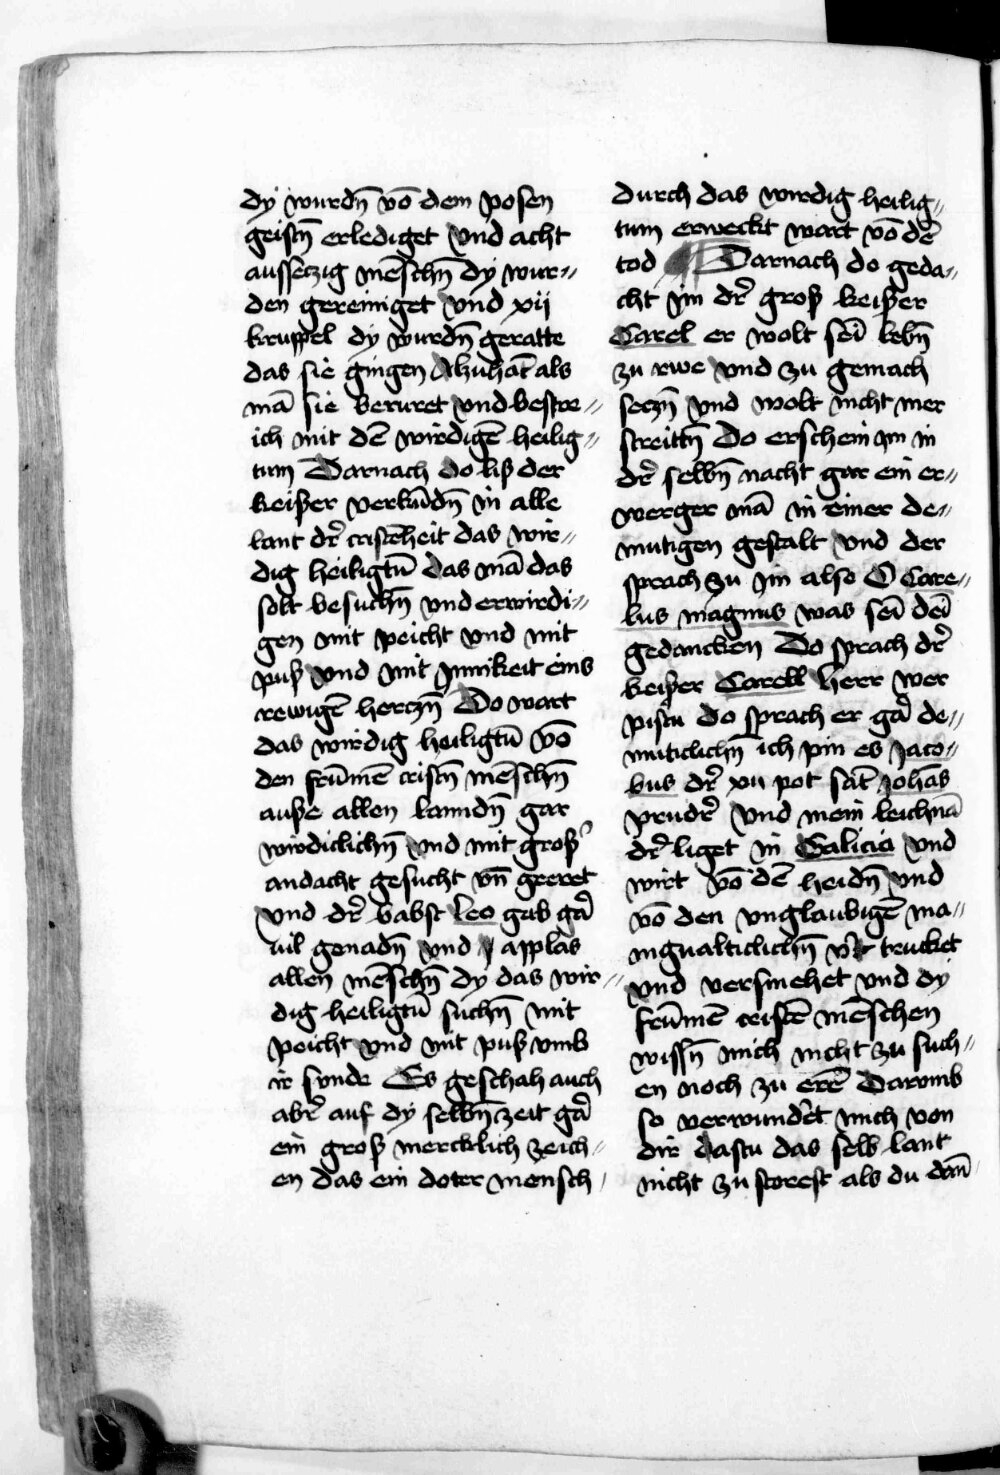 dy wurdn̄ vō dem posen
geisñ erlediget vnd acht
aussetzig mēschn̄ dy wur〃
den gereiniget vnd xij
kruppel dy wurdn̄ geratte
das sie gingen Alzuhāt als
mā sie beruret vnd bestre〃
ich mit dē wirdigē heilig〃
tum Darnach do liß der
keißer verkūdn̄ in alle
lant dr̄ cristēheit das wir〃
dig heiligtū das mā das
solt besuchn̄ vnd erwirdi〃
gen mit peicht vnd mit
puß vnd mit Innikeit eins
rewigē herczn̄ Do wart
das wirdig heiligtū vō
den frūmē cristn̄ mēschn̄
auße allen lanndn̄ gar
wirdiclichn̄ vnd mit groß̉
andacht gesucht vn̄ geeret
vnd dr̄ babst Leo gab gā̉
uil genadn̄ vnd applas
allen mēschn̄ dy das wir〃
dig heiligtū suchn̄ mit
peicht vnd mit puß vmb
ir sunde Es geschah auch
abr̄ auf dy selbn̄ zeit gā̉
ein groß mercklich zeich〃
en das ein doter mensch
durch das wirdig heilig〃
tum erweckt wart vō dē
tod Darnach do geda〃
cht Im dr̄ groß keißer
Carel er wolt sei̅ lebn̄
zu rwe vnd zu gemach
seczn̄ vnd wolt nicht mer
streittn̄ Do erschein Im in
dr̄ selbn̄ nacht gar ein er〃
werger mā in einer de〃
mutigen gestalt vnd der
sprach zu Im also O Care〃
lus magnus was sei̅ dei̅
gedancken Do sprach dr̄
keißer Carell herr wer
pistu do sprach er gā̉ de〃
muticlichn̄ ich pin es Jaco〃
bus dr̄ xii pot sāt Johās
prudr̄ vnd mein leichnā
dr̄ liget in Galicia vnd
wirt vō dē heidn̄ vnd
vō den vnglaubigē ma〃
nigualticlichn̄ v̉ trucket
vnd versmehet vnd dy
frūmē cristē mēschen
wissn̄ mich nicht zu such〃
en noch zu erē Darvmb
so verwundēt mich von
dir dastu das selb lant
nicht zu storest als du dan̄